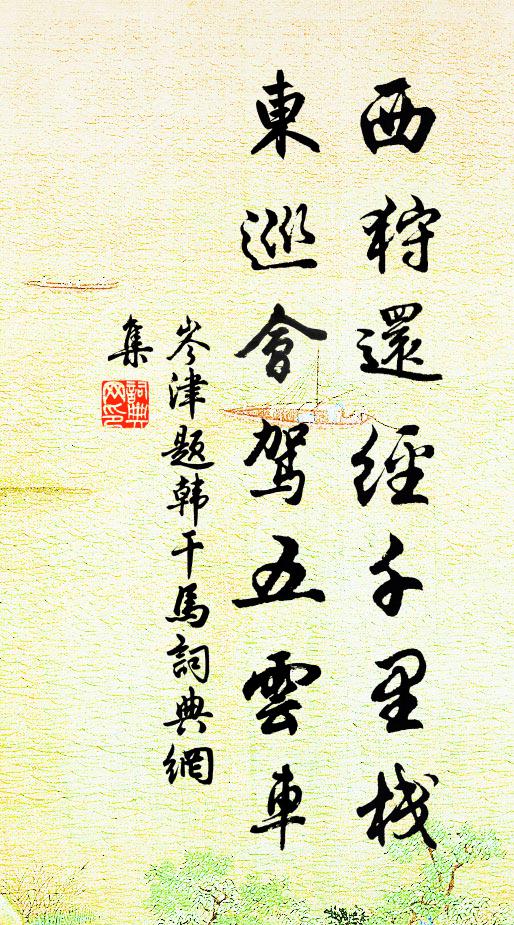 西狩還經千里棧
東巡會駕五雲車
岑津题韩干馬詞典網
集
詞典网印